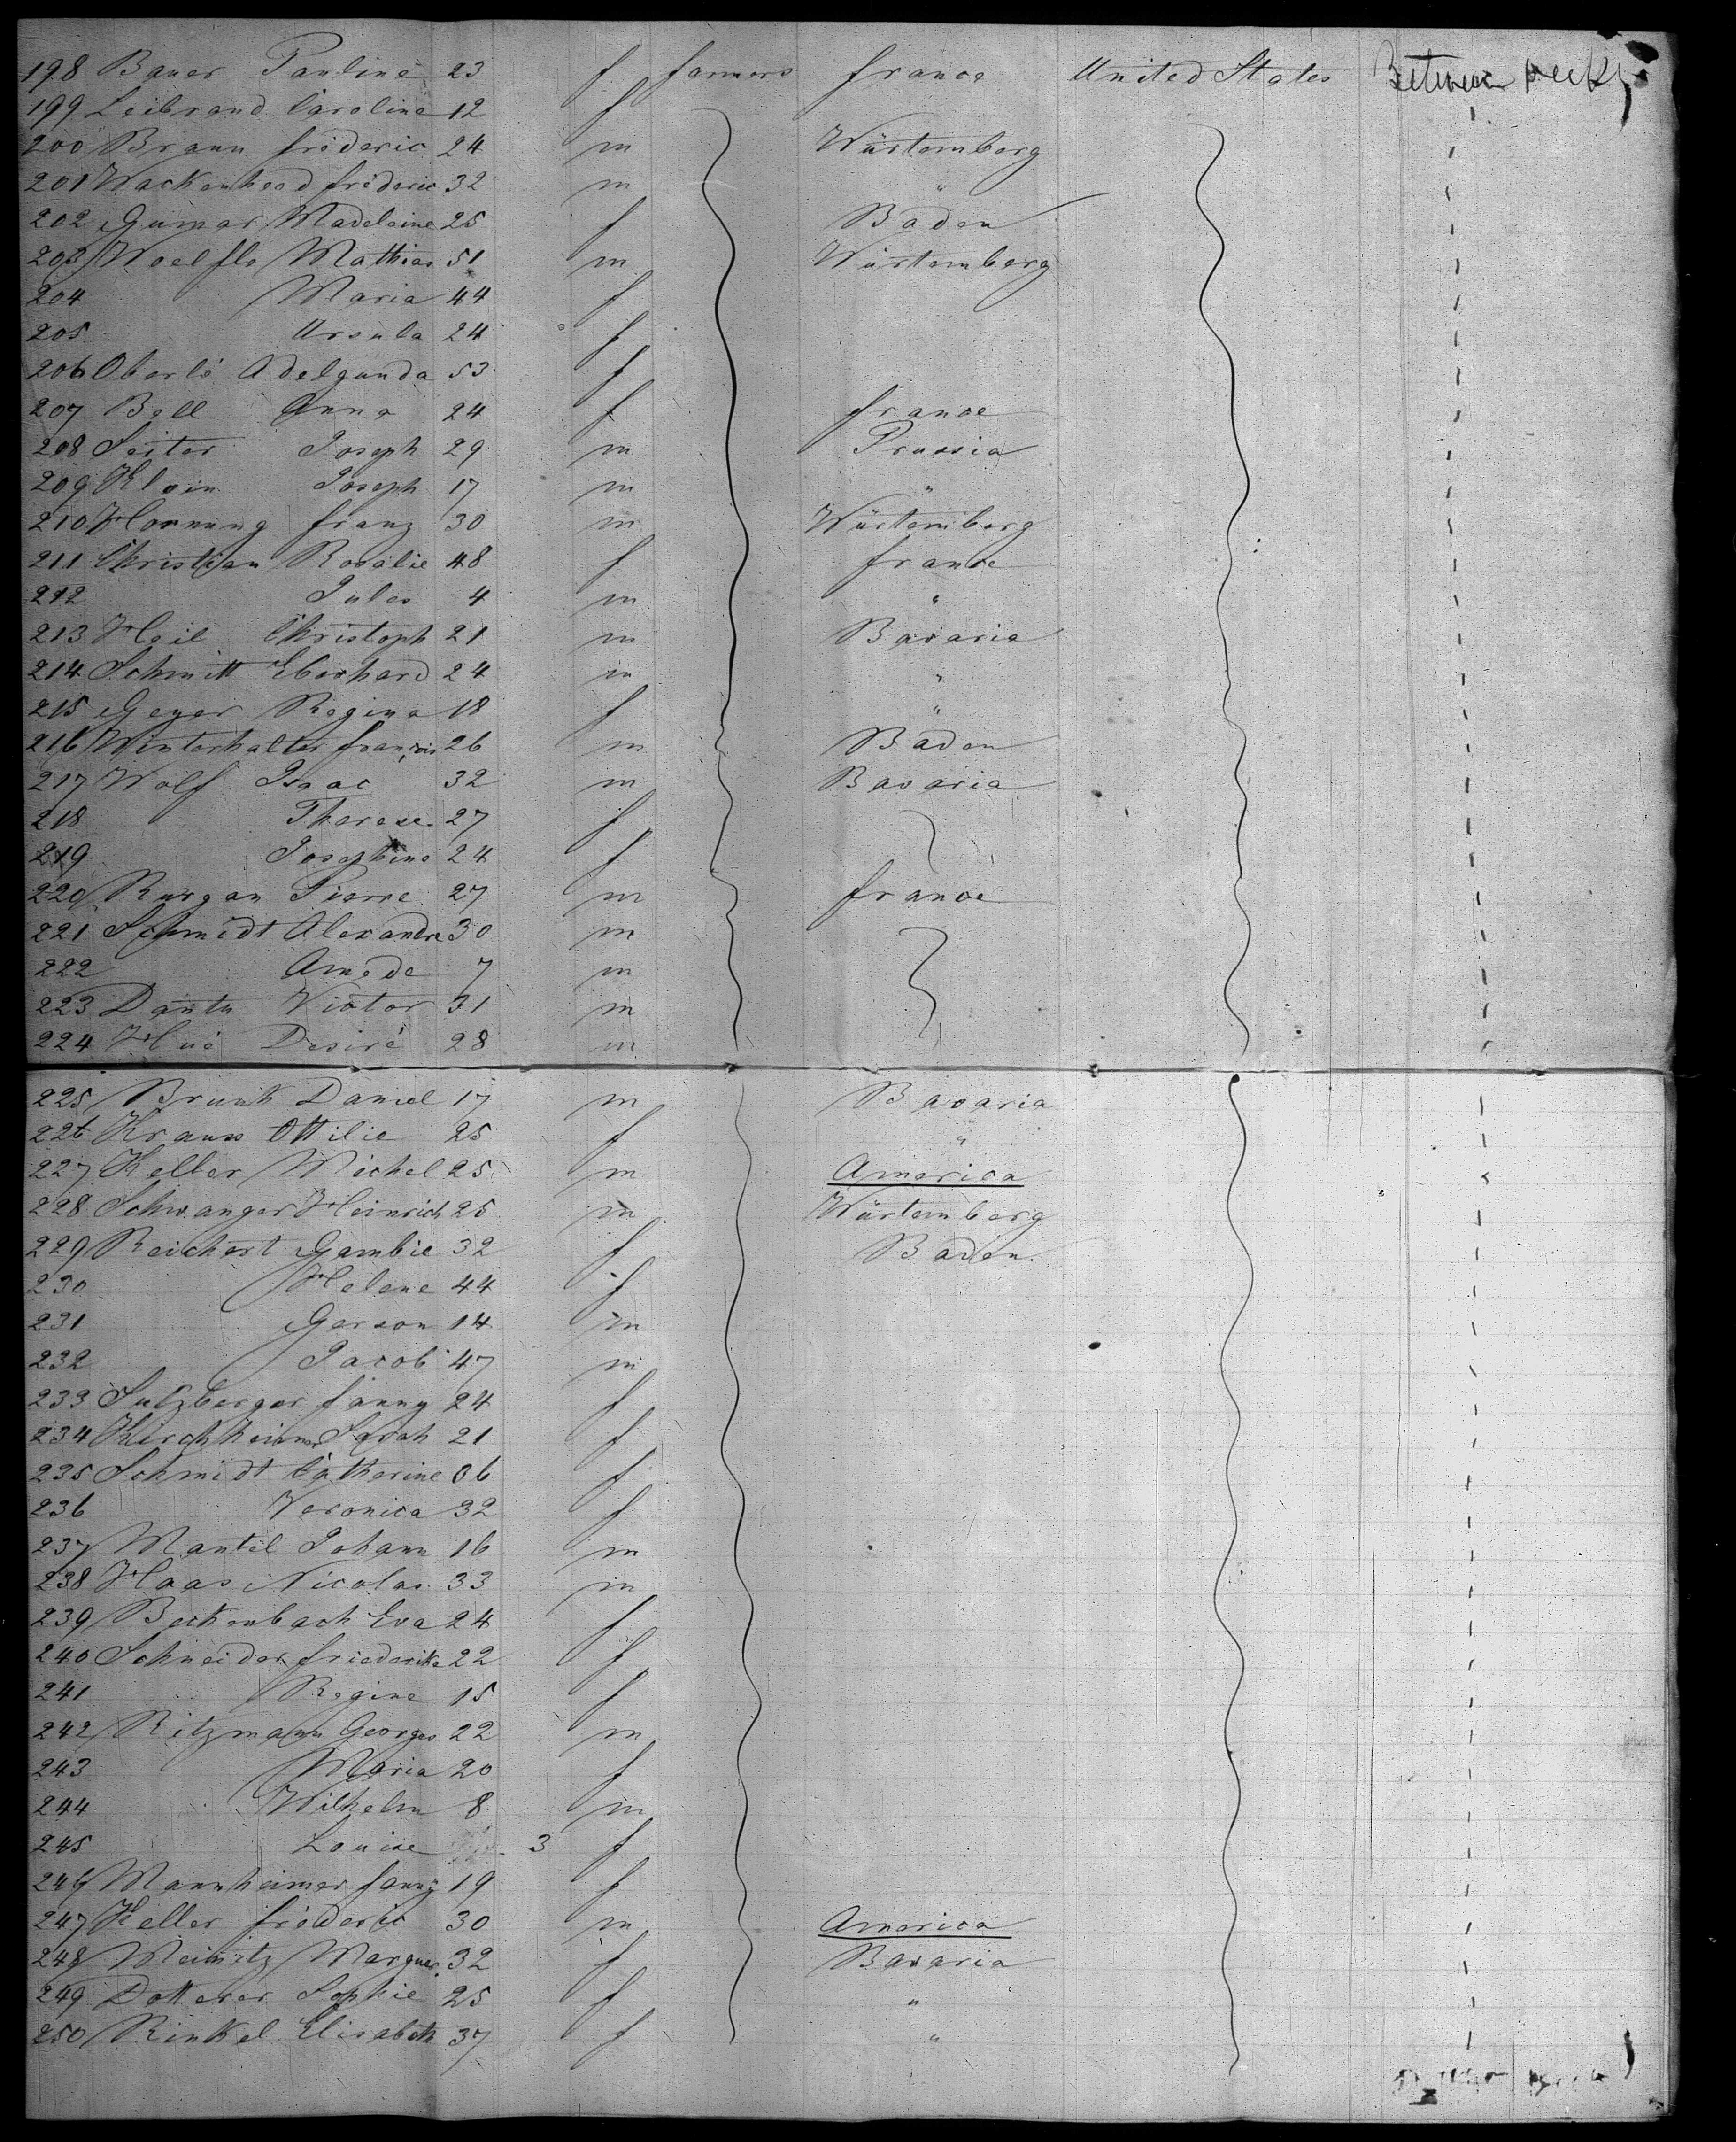 198 Bauer Pauline 23 f farmers france United States Between Decks
199 Leibrand Caroline 12 f
200 Braun fréderic 24 m Würtemberg
201 Wackenhead fréderic 32 m "
202 Gumar Madeleine 25 f Baden
203 Woelfle Mathias 51 m Würtemberg
204 Maria 44 f
205 Ursula 24 f
206 Oberlé Adelgunda 53 f
207 Bell Anna 24 f france
208 Seiter Joseph 29 m Prussia
209 Klein Joseph 17 m "
210 Hornung franz 30 m Würtemberg
211 Christian Rosalie 48 f france
212 Jules 4 m "
213 Heil Christoph 21 m Bavaria
214 Schmitt Eberhard 24 m "
215 Geyer Regina 18 f "
216 Winterhalter françois 26 m Baden
217 Wolf Isaac 32 m Bavaria
218 Therese 27 f
219 Josephine 24 f
220 Rurgan Pierre 27 m france
221 Schmidt Alexandre 30 m
222 Amede 7 m
223 Dantu Victor 31 m
224 Hué Desiré 28 m
225 Brunk Daniel 17 m Bavaria
226 Krauss Ottilie 25 f "
227 Keller Michel 25 m America
228 Schwanger Heinrich 25 m Würtemberg
229 Reichert Gambie 32 f Baden
230 Helene 44 f
231 Gerson 14 m
232 Jacob 47 m
233 Sulzberger fanny 24 f
234 Kirchheimer Sarah 21 f
235 Schmidt Catherine 36 f
236 Veronica 32 f
237 Mantel Johann 16 m
238 Haas Nicolas 33 m
239 Beckenbach Eva 24 f
240 Schneider friederike 22 f
241 Regine 15 f
242 Ritzmann Georges 22 m
243 Maria 20 f
244 Wilhelm 8 m
245 Louise 3 f
246 Mannheimer fanny 19 f
247 Keller fréderic 30 m America
248 Meinitz Marguer. 32 f Bavaria
249 Dotterer Sophie 25 f "
250 Rinkel Elisabeth 37 f "